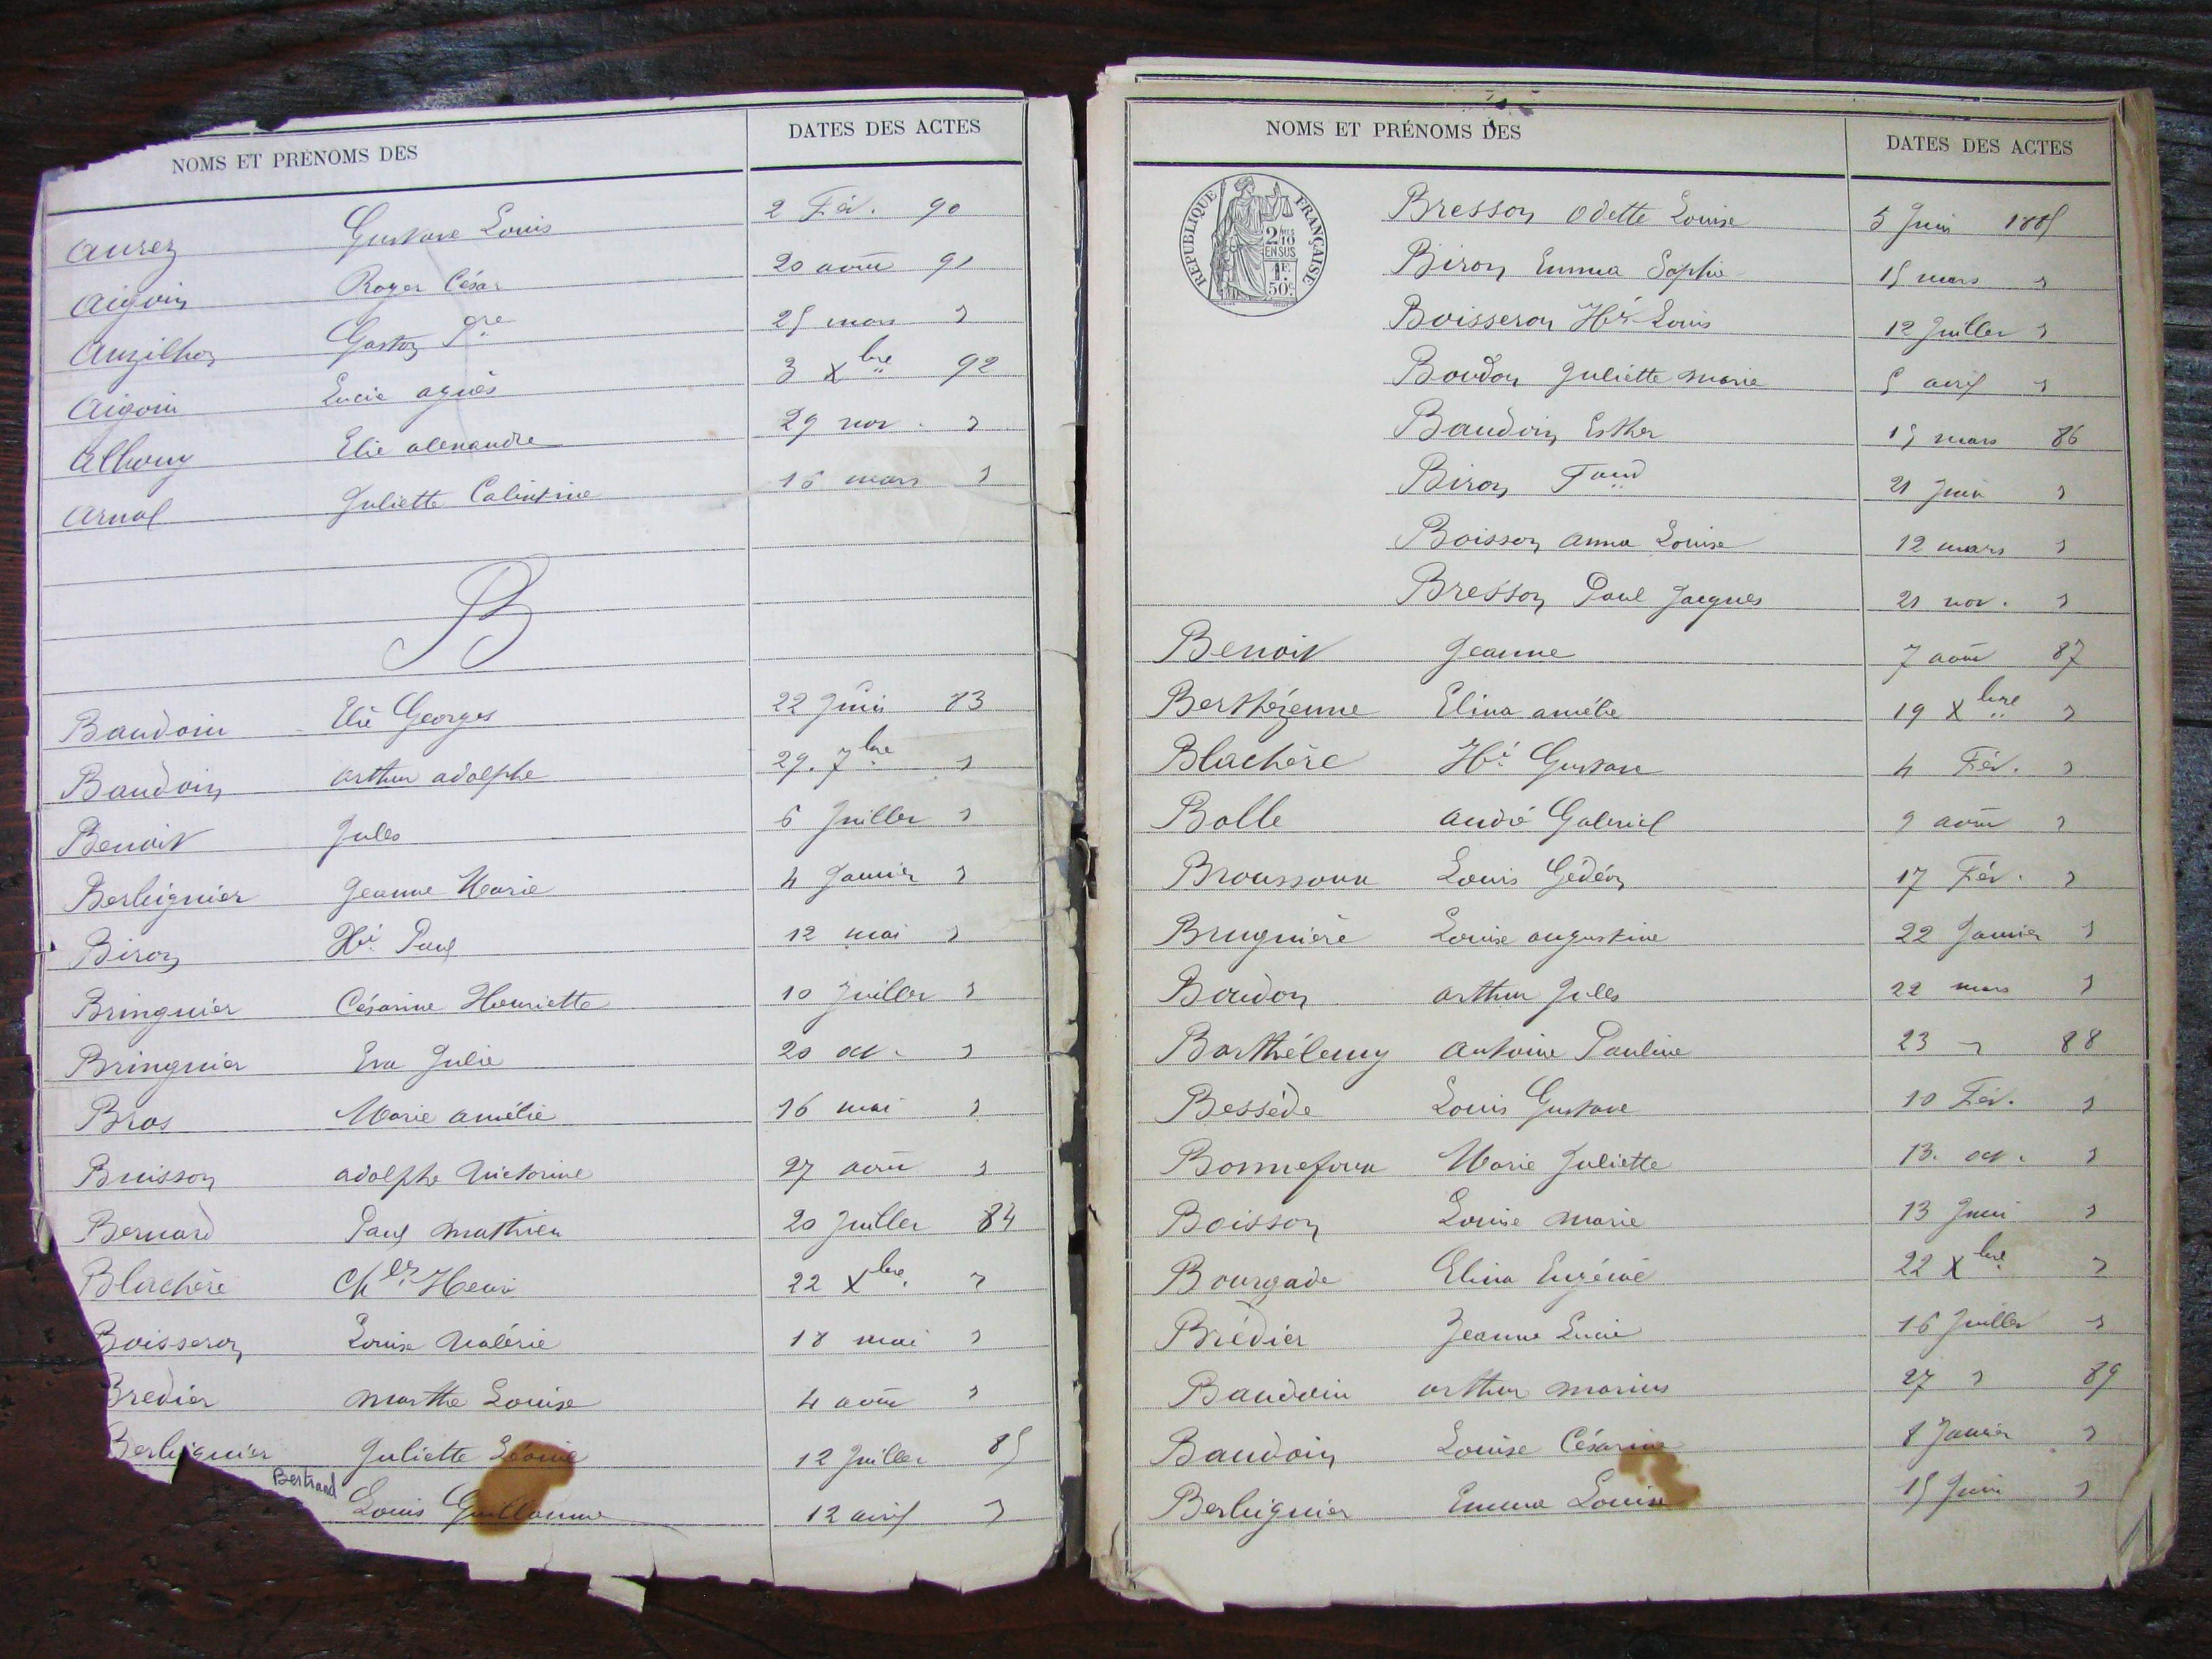 NOMS ET PRÉNOMS DES DATES DES ACTES
Aurez Gustave Louis 2 Fév. 90
Aigoin Roger César 20 août 91
Auzilhon Gaston Pre 25 mars "
Aigoin Lucie Agnès 3 Xbre 92
Albouy Elie Alexandre 29 nov. "
Arnal Juliette 16 mars "
B
Baudoin Elie Georges 22 Juin 83
Baudoin Arthur Adolphe 29. 7bre "
Benoit Jules 6 Juillet "
Berluguier Jeanne Marie 4 Janvier "
Biron Hri Paul 12 mai "
Bringuier Césarine Henriette 10 Juillet "
Bringuier Eva Julie 20 oct. "
Bros Marie Amélie 16 mai "
Buisson Adolphe Victorine 27 août "
Bernard Paul Mathieu 20 Juillet 84
Blachère Chles Henri 22 Xbre "
Boisseron Louise Valérie 18 mai "
Bredier Marthe Louise 4 août "
Berluguier Juliette Léonie 12 Juillet 85
Bertrand Louis Guillaume 12 avril "
NOMS ET PRÉNOMS DES DATES DES ACTES
RÉPUBLIQUE FRANÇAISE
2/10
EN SUS
1F.
50c.
Bresson Odette Louise 5 Juin 1885
Biron Emma Sophie 15 mars "
Boisseron Hri Louis 12 Juillet "
Boudon Juliette Marie 5 avril "
Baudoin Esther 15 mars 86
Biron Fand 21 Juin "
Boisson Anna Louise 12 mars "
Bresson Paul Jacques 21 nov. "
Benoit Jeanne 7 août 87
Berthézenne Elina Amélie 19 Xbre "
Blachère Hri Gustave 4 Fév. "
Bolle André Gabriel 9 août "
Broussoux Louis Gédéon 17 Fév. "
Bruguière Louise Augustine 22 Janvier "
Boudon Arthur Jules 22 mars "
Barthélemy Antoine Pauline 23 " 88
Bessède Louis Gustave 10 Fév. "
Bonnefoux Marie Juliette 13. oct. "
Boisson Louise Marie 13 Juin "
Bourgade Elina Eugénie 22 Xbre "
Brédier Jeanne Lucie 16 Juillet "
Baudoin Arthur Marius 27 " 89
Baudoin Louise Césarine 8 Janvier "
Berluguier Emma Louise 15 Juin "